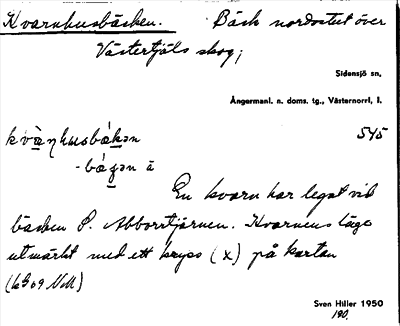 Kvarnhusbäcken. Bäck nordostut över
Västertjäls skog;
Sidensjö sn,
Ångermanl. n. doms. tg., Västernorrl. l.
545
kvàn̥husbákən
-bágən ä
En kvarn har legat vid
bäcken S. Abborrtjärnen. Kvarnens läge
utmärkt med ett kryss (x) på kartan
Sven Hiller 1950
190.